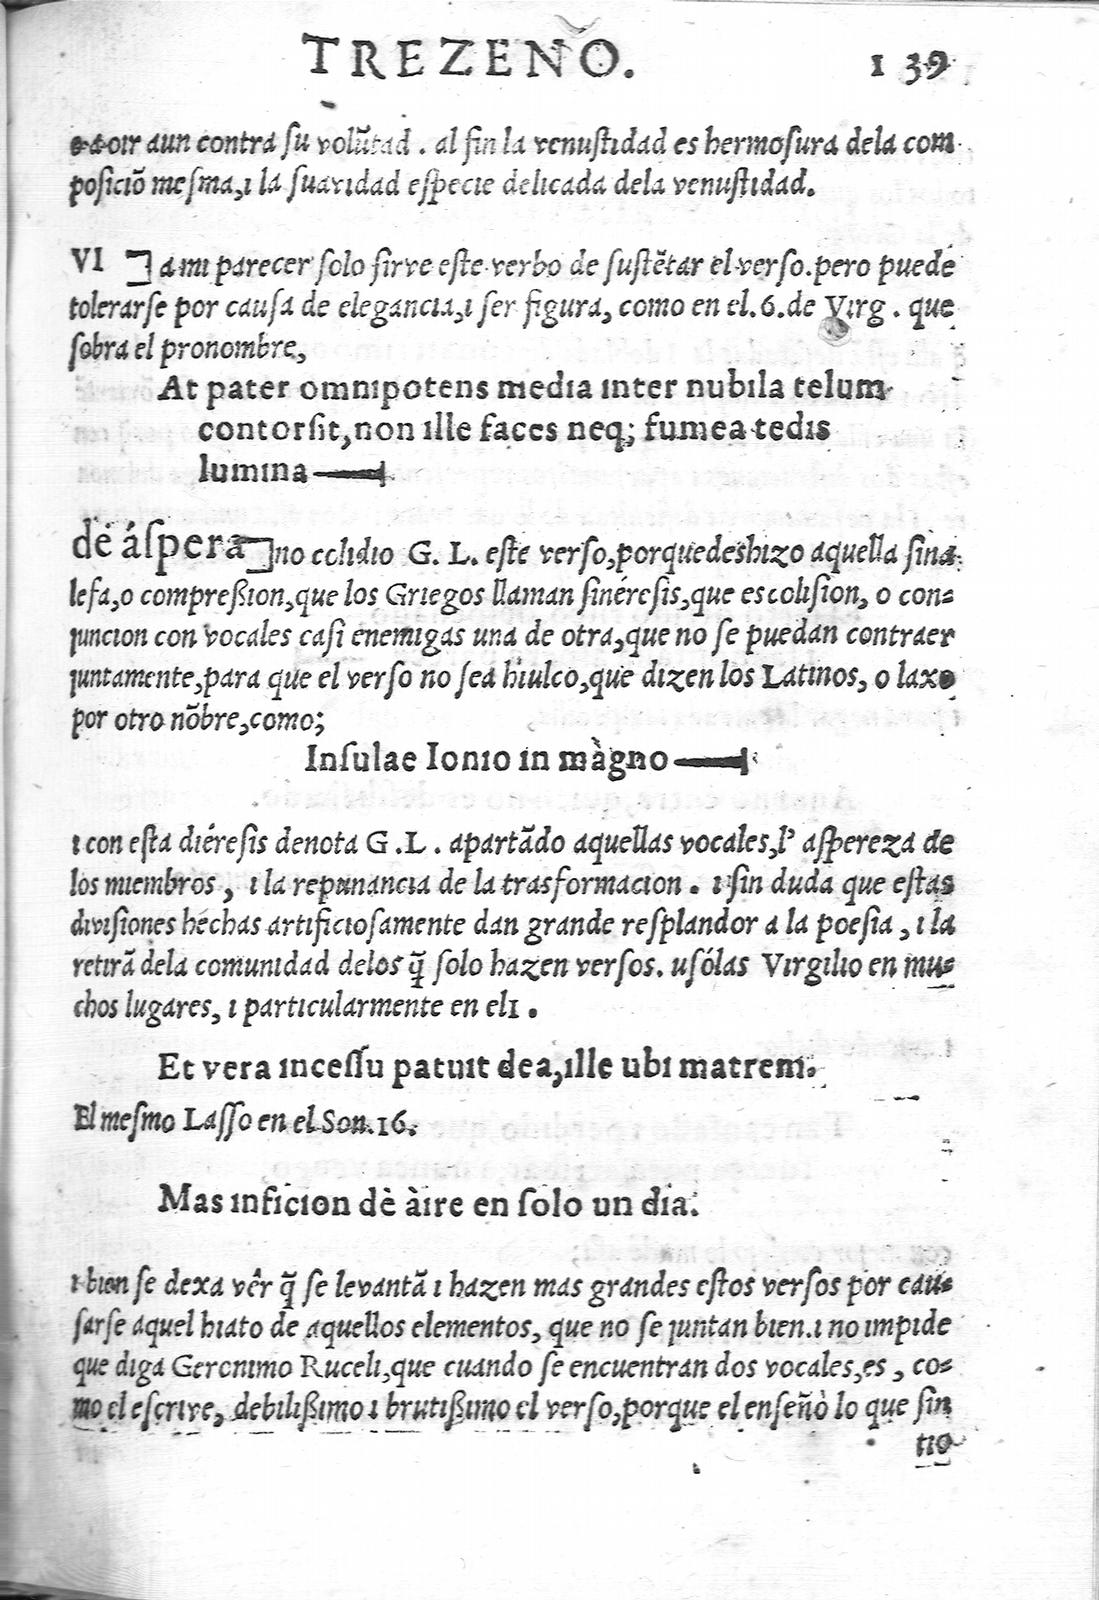 TREZEÑO. 139
e a oir aun contra ſu volũtad . al fin la venuſtidad es hermoſura dela com
poſiciõ meſma,ı la ſuavidad eſpecie delicada dela venuſtidad.
VI ] a mi parecer ſolo ſirve eſte verbo de ſuſtẽtar el verſo.pero puede
tolerarſe por cauſa de elegancia,ı ſer figura, como en el.6.de Virg . que
ſobra el pronombre,
At pater omnıpotens medıa ınter nubıla telum
contorſıt,non ılle faces neq; fumea tedıs
lumına—
dė áſpera ]no colidio G. L. eſte verſo,porque deshizo aquella ſina
lefa,o compreßion,que los Griegos llaman ſinéreſis,que es coliſion, o con=
juncion con vocales caſi enemigas una de otra,que no ſe puedan contraer
juntamente,para que el verſo no ſea hiulco,que dizen los Latinos, o laxo
por otro nõbre,como;
Inſulae Ionıo ın màgno—
ı con eſta diéreſis denota G.L. apartãdo aquellas vocales,l' aſpereza de
los miembros, ı la repunancia de la trasformacion. ı ſin duda que eſtas
diviſiones hechas artificioſamente dan grande reſplandor a la poeſia, ı la
retirã dela comunidad delos q̃ ſolo hazen verſos. uſólas Virgilio en mu=
chos lugares, ı particularmente en el ı .
Et vera ınceſſu patuıt dea,ılle ubı matrem.
El meſmo Laſſo en el Son.16.
Mas ınficıon dè àıre en ſolo un dıa.
ı bien ſe dexa vêr q̃ ſe levantã ı hazen mas grandes eſtos verſos por cau=
ſarſe aquel hiato de aquellos elementos, que no ſe juntan bien.ı no impide
que diga Geronimo Ruceli,que cuando ſe encuentran dos vocales,es, co=
mo el eſcrive, debilißimo ı brutißimo el verſo,porque el enſeñò lo que ſin
tio